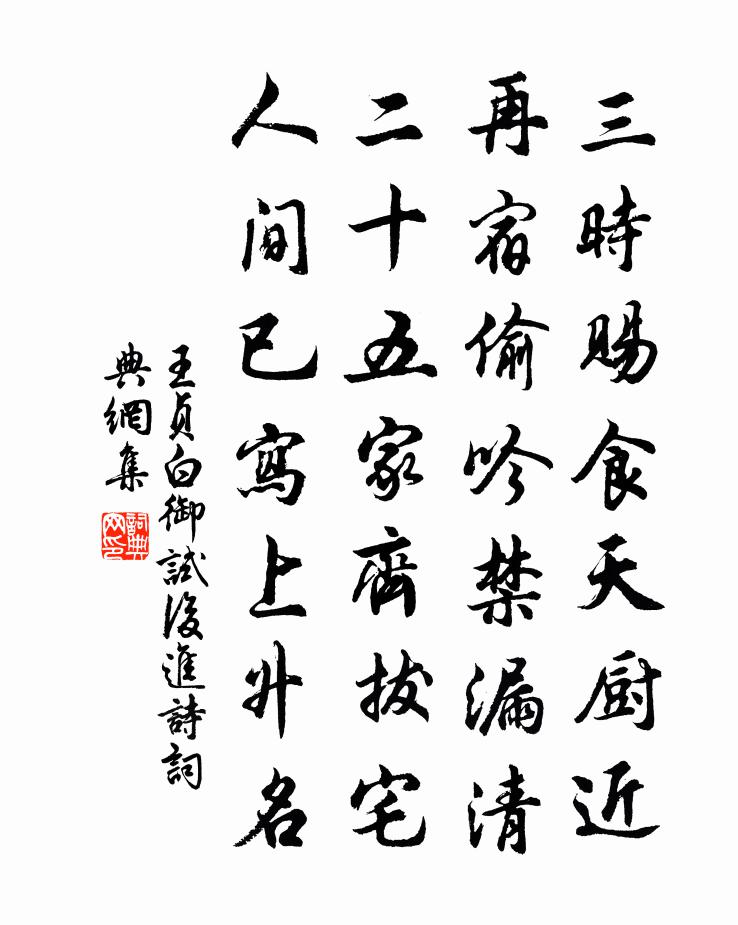 三時賜食天厨近
再宿偷吟禁漏清
二十五家齊拔宅
人间已寫上升名
王貞白御試後進詩詞
典網集
詞典網印